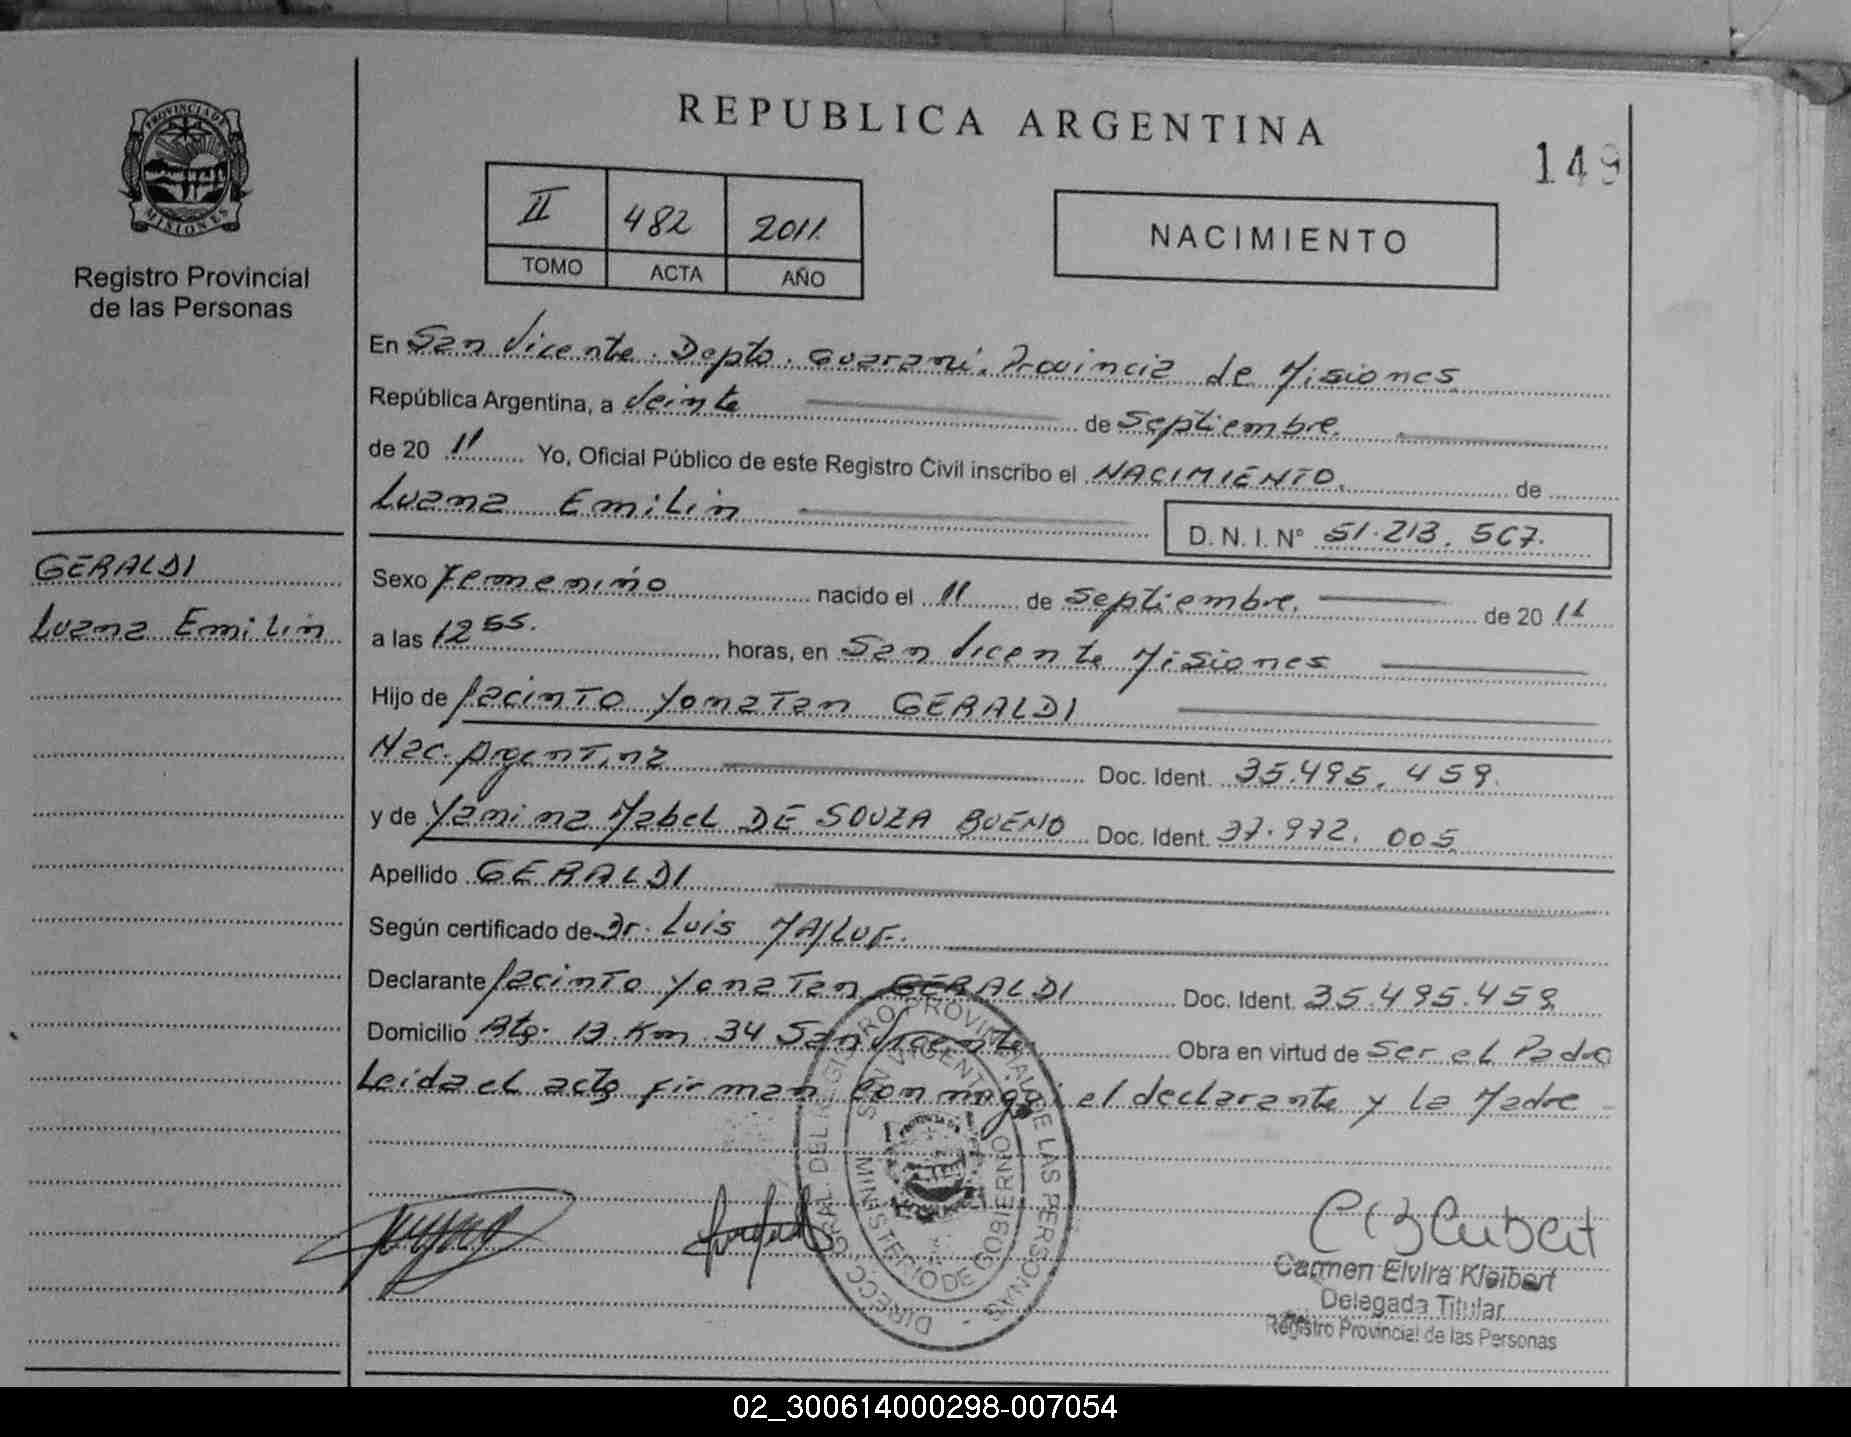 REPUBLICA ARGENTINA
149
PROVINCIA DE
MISIONES
Registro Provincial
de las Personas
II 482 2011
TOMO ACTA AÑO
NACIMIENTO
En San Vicente. Depto. Guaraní. Provincia de Misiones
República Argentina, a Veinte de Septiembre.
de 20 11 Yo, Oficial Público de este Registro Civil inscribo el NACIMIENTO. de
Luana Emilin
D. N. I. Nº 51.213.567.
GERALDI
Luana Emilin
Sexo Femenino nacido el 11 de Septiembre. de 20 11
a las 12 55. horas, en San Vicente Misiones
Hijo de Jacinto Yonatan GERALDI
Nac. Argentina Doc. Ident. 35.495.459.
y de Yanina Mabel DE SOUZA BUENO Doc. Ident. 37.972.005
Apellido GERALDI
Según certificado de Dr. Luis MAJLUF.
Declarante Jacinto Yonatan GERALDI Doc. Ident. 35.495.459
Domicilio Rta. 13 Km 34 San Vicente Obra en virtud de Ser el Padre
Leida el acta firman conmigo el declarante y la Madre
DIRECC. GRAL. DEL REGISTRO PROVINCIAL DE LAS PERSONAS
MINISTERIO DE GOBIERNO
Carmen Elvira Kleibert
Delegada Titular
Registro Provincial de las Personas
02_300614000298-007054